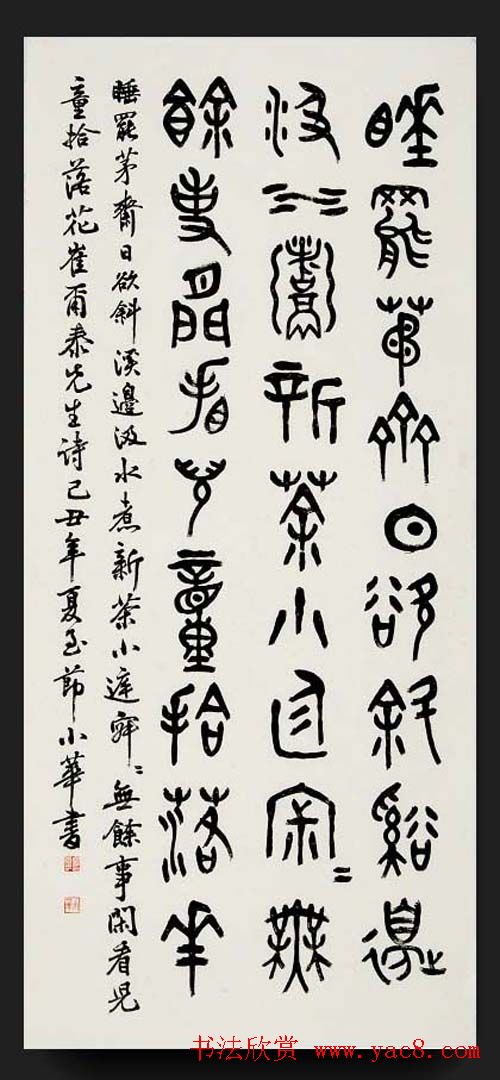 睡罷茅齋日欲斜谿邊
汲水煮新茶小庭寂〻無
餘事閒看兒童拾落華
睡罷茅齋日欲斜溪邊汲水煮新茶小庭寂〻無餘事閑看兒
童拾落花崔爾泰先生诗己丑年夏至節小華書
书法欣赏 www.yac8.com